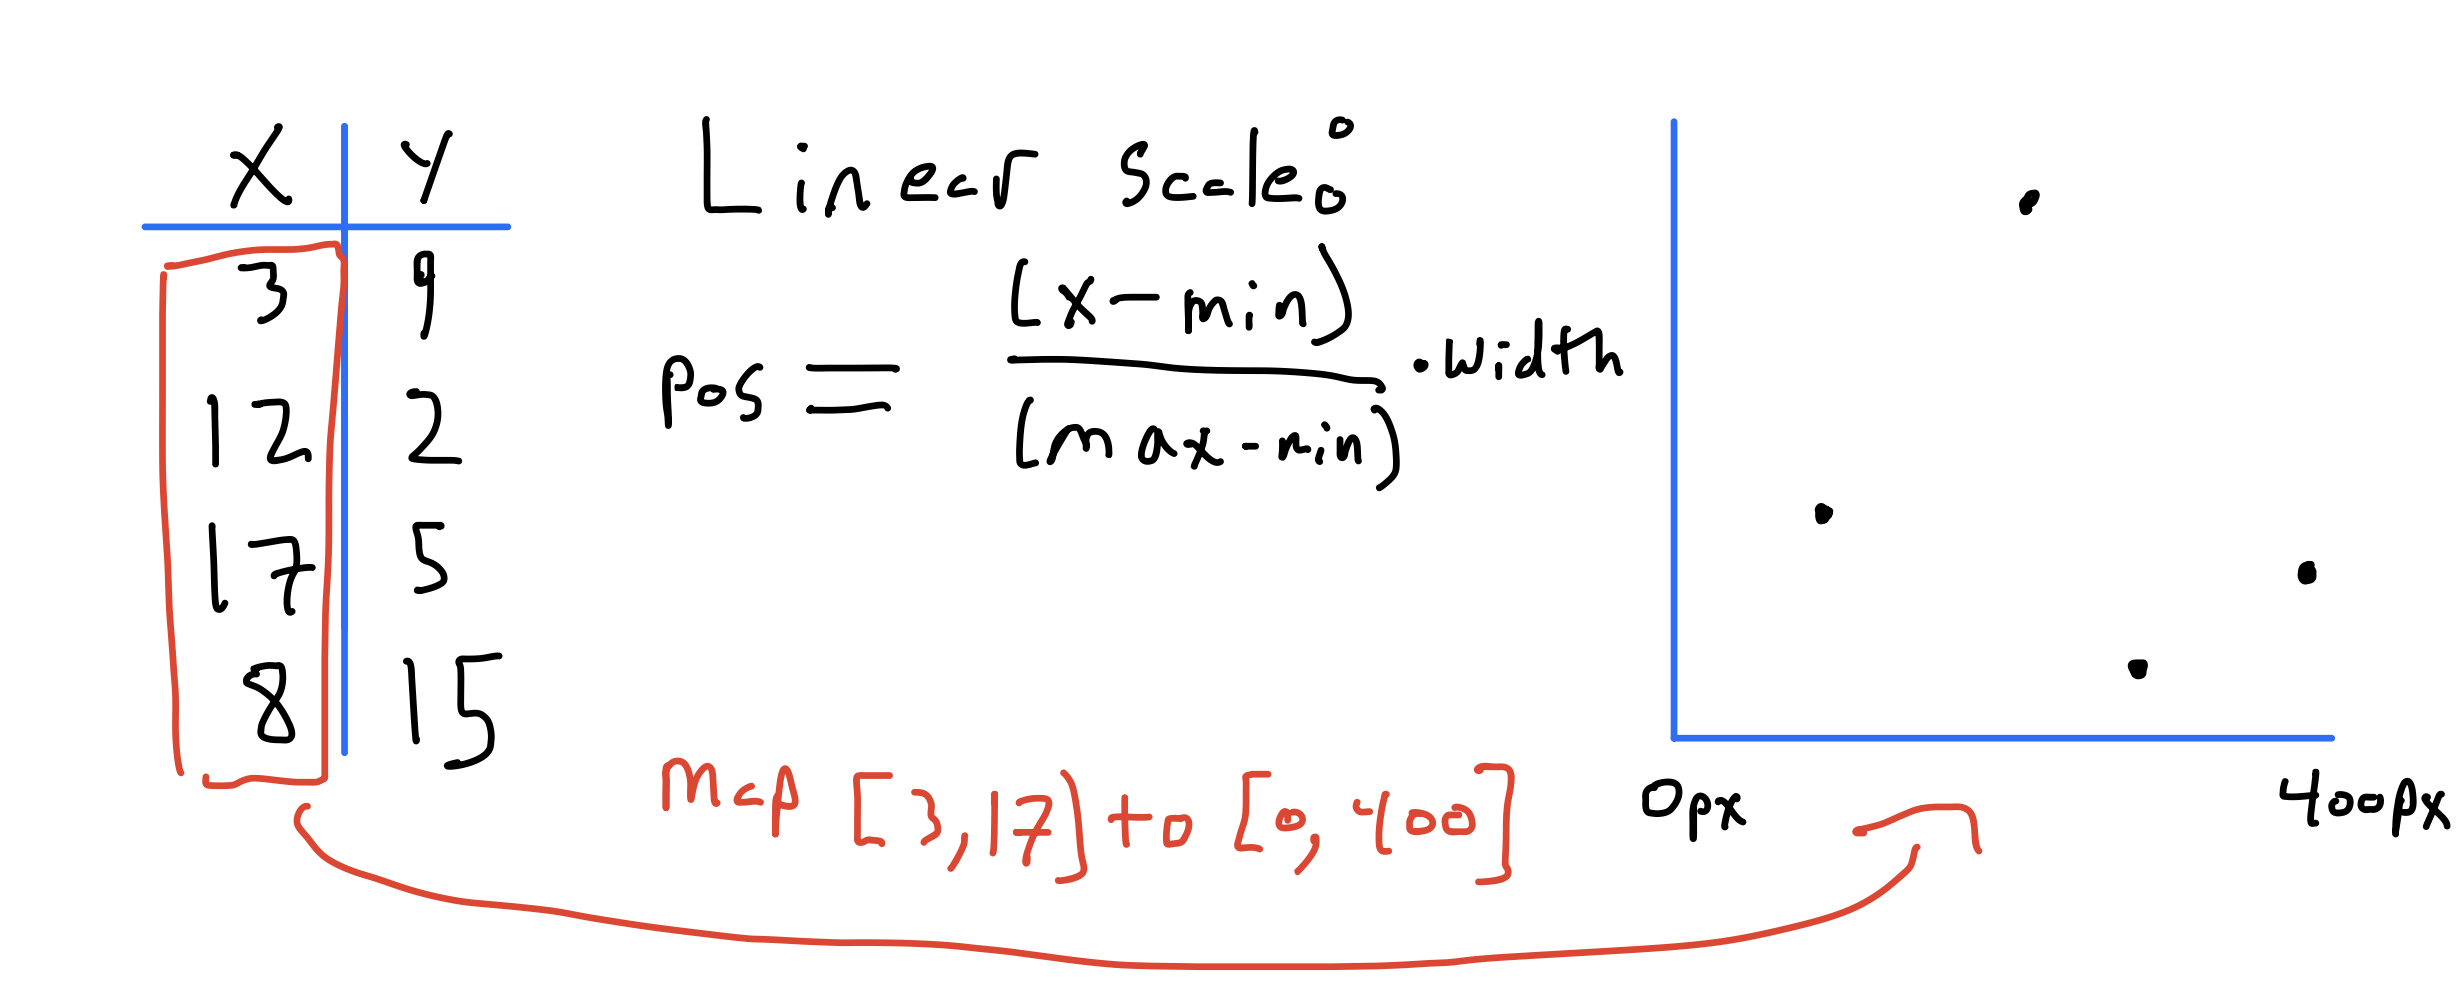 X Y
3 9
12 2
17 5
8 15
Linear Scale:
pos = (x - min) / (max - min) · width
map [3, 17] to [0, 400]
0px 400px